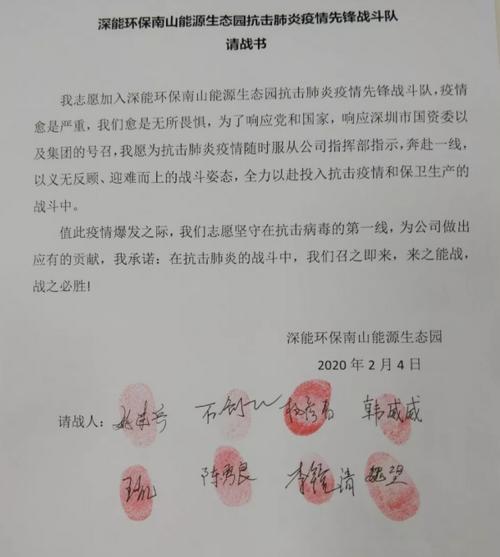 深能环保南山能源生态园抗击肺炎疫情先锋战斗队
请战书
我志愿加入深能环保南山能源生态园抗击肺炎疫情先锋战斗队，疫情
愈是严重，我们愈是无所畏惧，为了响应党和国家，响应深圳市国资委以
及集团的号召，我愿为抗击肺炎疫情随时服从公司指挥部指示，奔赴一线，
以义无反顾、迎难而上的战斗姿态，全力以赴投入抗击疫情和保卫生产的
战斗中。
值此疫情爆发之际，我们志愿坚守在抗击病毒的第一线，为公司做出
应有的贡献，我承诺：在抗击肺炎的战斗中，我们召之即来，来之能战，
战之必胜!
深能环保南山能源生态园
2020 年 2 月 4 日
请战人： 韩威威
陈秀良 魏望